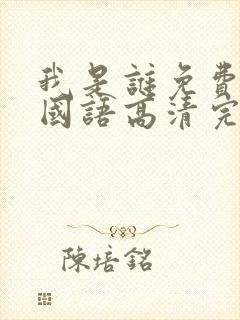 我是誰免費
國語高清完
陳培銘